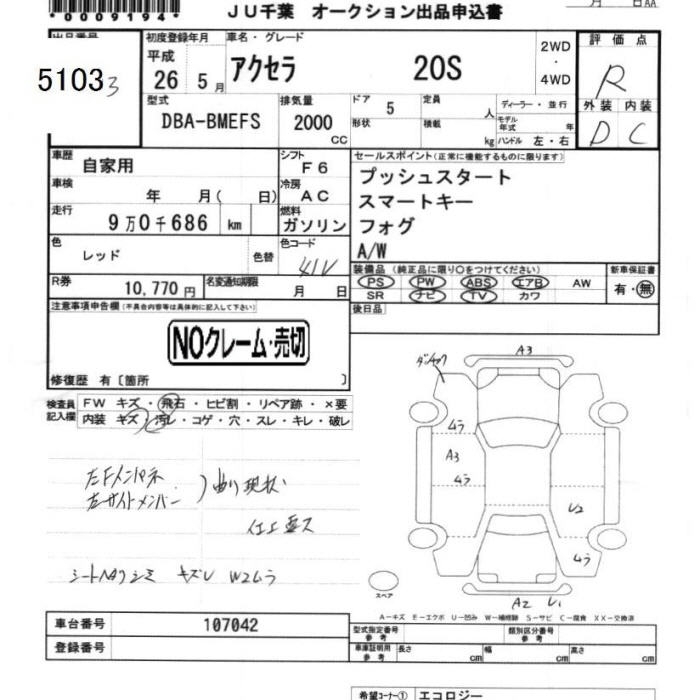 *0009194*
JU千葉 オークション出品申込書
月 日AA
出品番号
51033
初度登録年月
平成
26 5月
車名・グレード
アクセラ 20S
2WD
・
4WD
評価点
R
型式
DBA-BMEFS
排気量
2000
CC
ドア 5
形状
定員 人
積載 kg
ディーラー・並行
モデル年式 年
ハンドル 左・右
外装 内装
D C
車歴
自家用
シフト
F6
車検
年 月( 日)
冷房
AC
走行
9万0千686 km
燃料
ガソリン
色
レッド
色替
色コード
41V
R券
10,770円
名変通知期限
月 日
セールスポイント(正常に機能するものに限ります)
プッシュスタート
スマートキー
フォグ
A/W
装備品 (純正品に限り○をつけてください)
PS PW ABS エアB AW
SR ナビ TV カワ
新車保証書
有・無
後日品
注意事項申告欄(不具合内容等は具体的に記入して下さい)
NOクレーム・売切
修復歴 有〔箇所 〕
検査員
記入欄
FW キズ・飛石・ヒビ割・リペア跡・×要
内装 キズ・汚レ・コゲ・穴・スレ・キレ・破レ
左サイドメンバー
曲り現状
キズ W2ムラ
A3
ムラ
A3
ムラ
U2
ムラ
A2 U1
スペア
A-キズ E-エクボ U-凹み W-補修跡 S-サビ C-腐食 XX-交換済
車台番号 107042
登録番号
型式指定番号
参考
類別区分番号
参考
車庫証明用
参考
長さ cm 幅 cm 高さ cm
希望コーナー① エコロジー